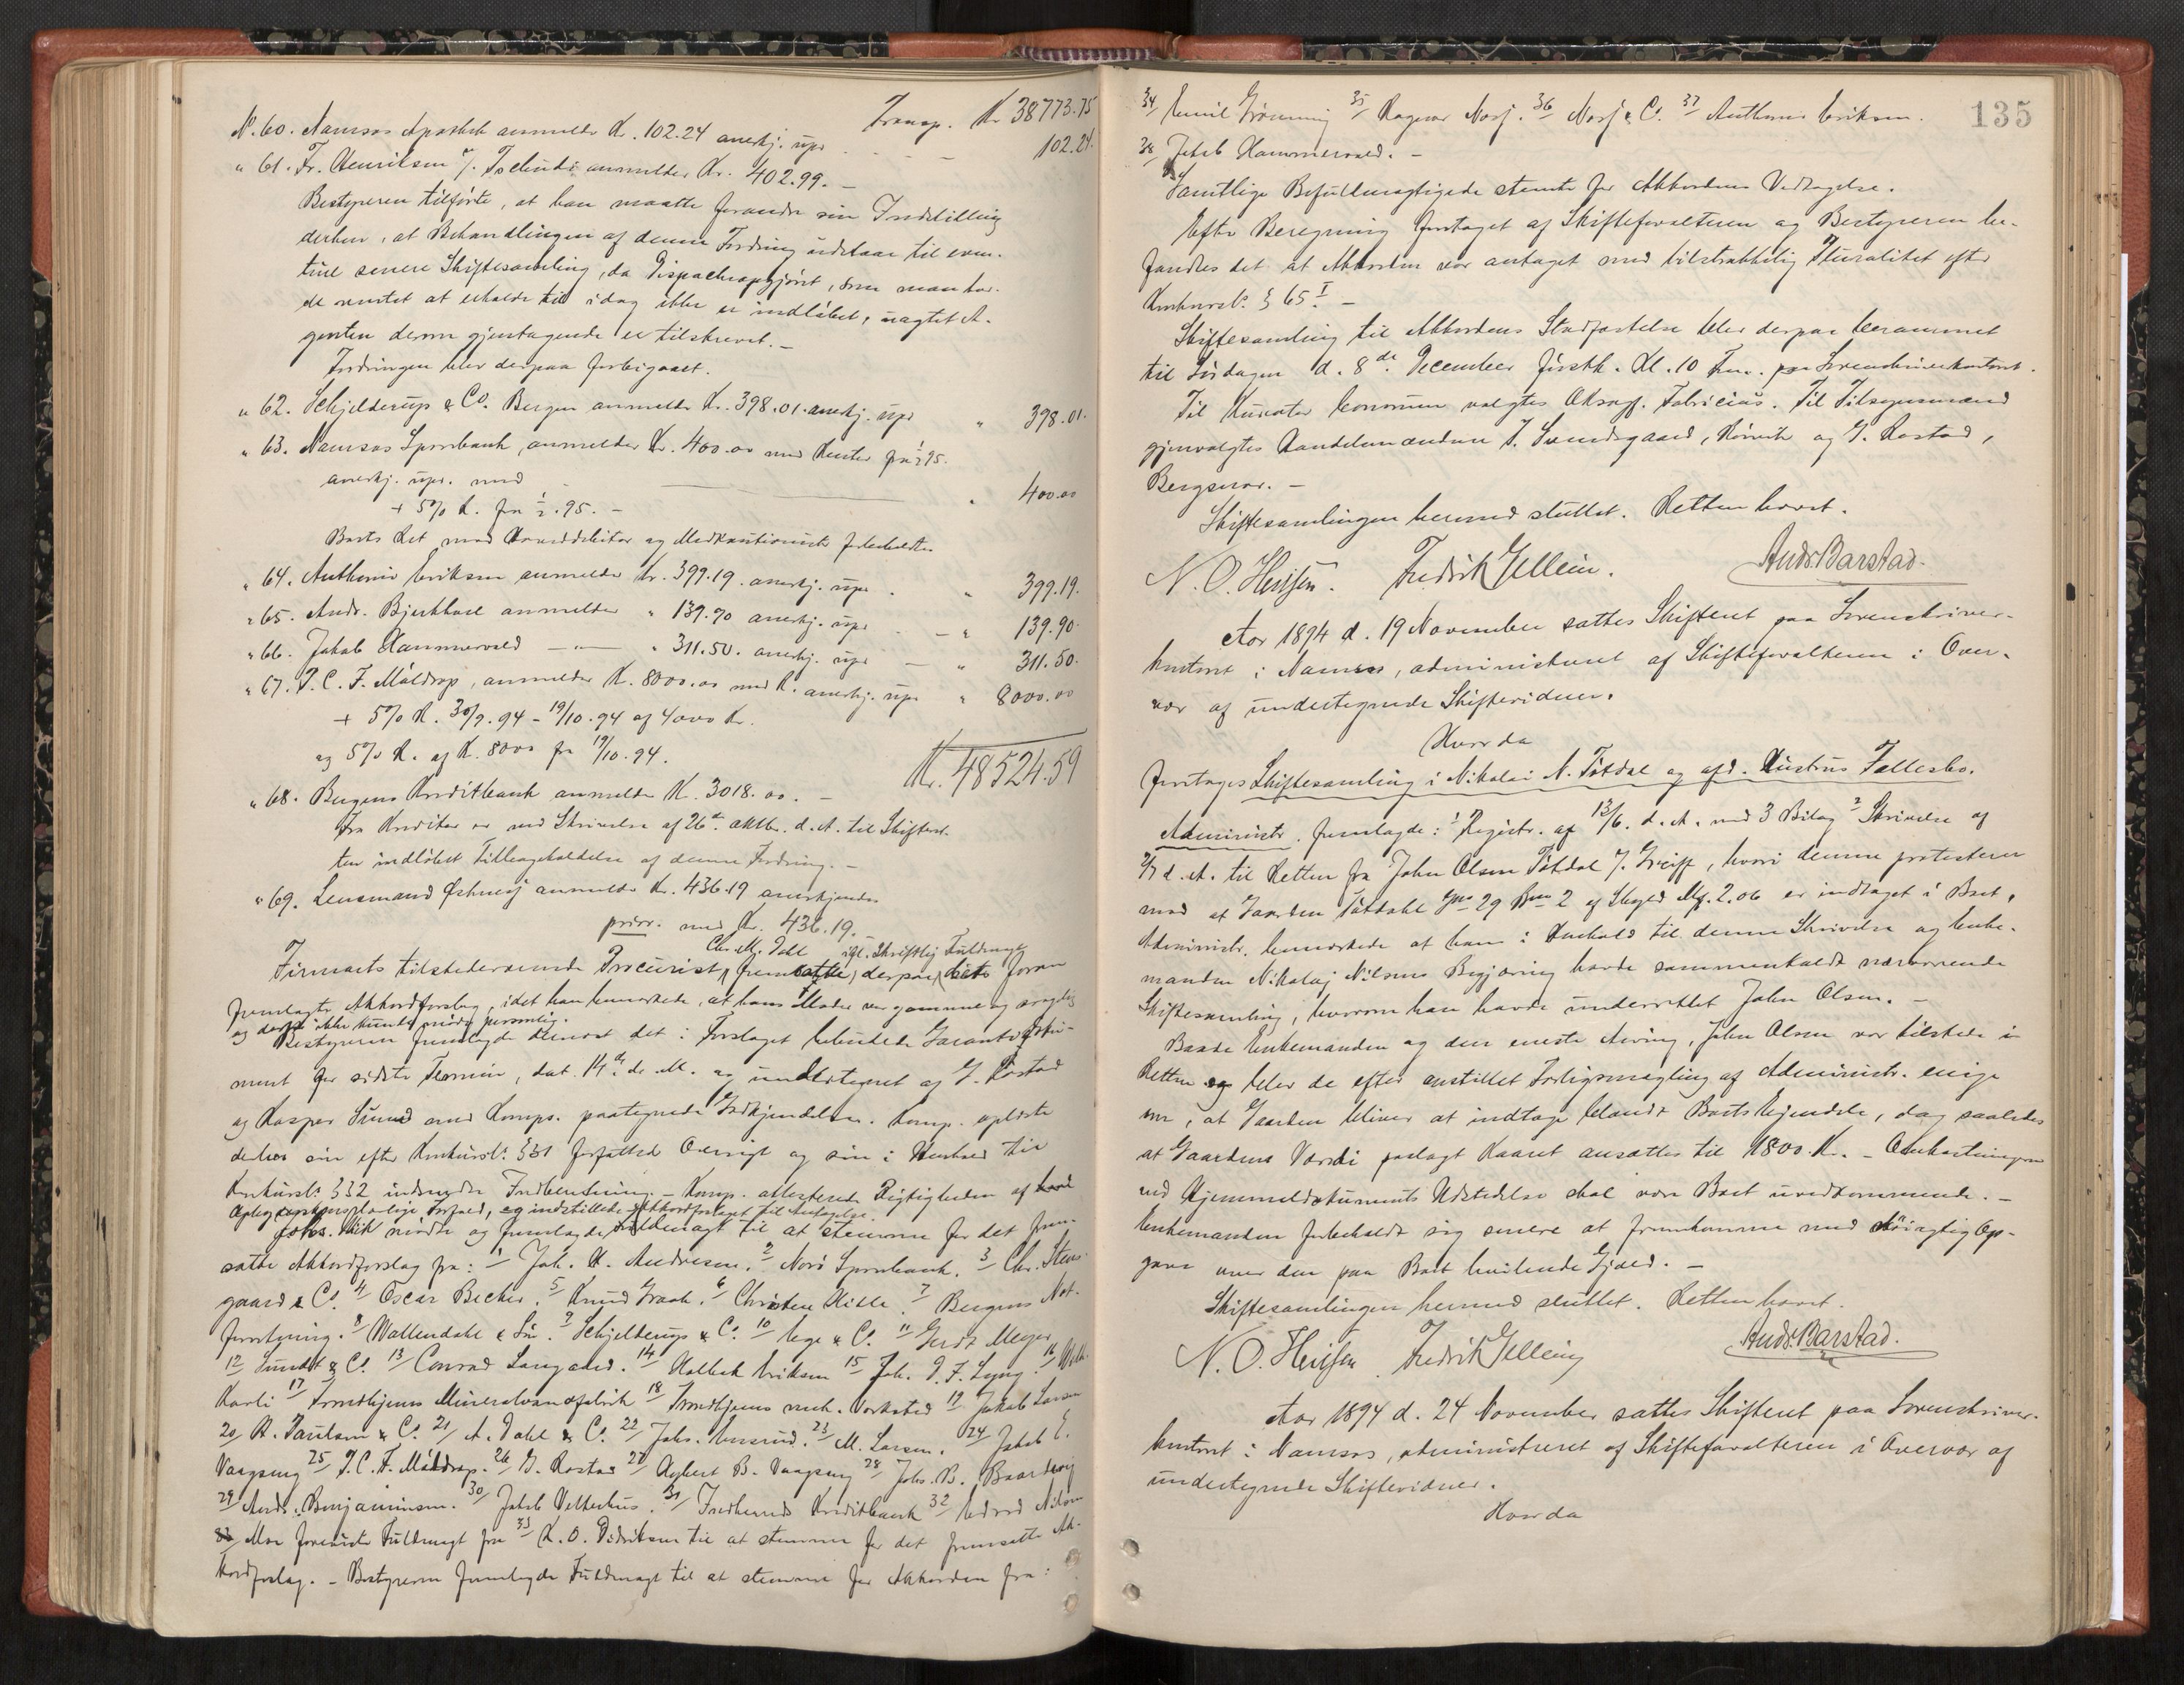 Transp. Kr 38773.75
No. 60. Namsos Apothek anmeldte Kr. 102.24 anerkj. upr. 102.24.
" 61. Fr. Henriksen anmelder Kr. 402.99. –
Bestyreren tilførte, at han maatte forandre sin Indstilling
derhen, at Behandlingen af denne Fordring udstaar til even-
tuel senere Skiftesamling, da Dispacheopgjöret, som man hav-
de ventet at erholde til idag ikke er indløbet, uagtet A-
genten derom gjentagende er tilskrevet. –
Fordringen blev derpaa forbigaaet.
" 62. Schjelderup & Co. Bergen anmeldte Kr. 398.01. anerkj. upr " 398.01.
" 63. Namsos Sparebank, anmelder Kr. 400.00 med Renter fra 95.
anerkj. upr. med " 400.00
+ 5% R. fra 95. –
Boets Ret mod Hoveddebitor og Medkautionister forbeholdtes
" 64. Anthonie Eriksen anmelder Kr. 399.19. anerkj. upr. " 399.19.
" 65. Andr. Bjerkhoel anmelder " 139.90 anerkj. upr. – " 139.90.
" 66. Jakob Hammervold – " – " 311.50. anerkj. upr – " 311.50.
" 67. J. C. F. Måldrop, anmelder K. 8000.00 med R. anerkj. upr " 8000.00
+ 5% R. 30/9.94 – 19/10.94 af 4000 Kr.
og 5% R. af K. 8000 fra 19/10.94.
Kr. 48524.59
" 68. Bergens Kreditbank anmelder K. 3018.00. –
Fra Kreditor er ved Skrivelse af 26de oktbr. d. A. til Skifteret-
ten indløbet Tilbagekaldelse af denne Fordring. –
" 69. Lensmand anmelder Kr. 436.19 anerkjendes
prior. med Kr. 436.19. –
Chr. M. Dahl iflg. Skriftlig Fuldmagt
Firmaets tilstedeværende Procurist fremsatte derpaa foran
fremlagte Akkordforslag, idet han bemærkede, at hans Moder var gammel og svagelig
og derfor ikke kunde møde personlig.
Bestyreren fremlagde dernæst det i Forslaget bebudede Garantidoku-
ment for sidste Termin, dat. 14de ds. M. og undertegnet af G. Rostad
og Kasper Sund med Komps. paategnede Godkjendelse. Komp. oplæste
derhos sin efter Konkursl. § 31 forfattede Oversigt og sin i Henhold til
Konkursl. § 32 indsendte Indberetning. – Komp. attesterede Rigtigheden af
Forhold, og indstillede Akkordforslaget til Antagelse.
mødte og fremlagde Fuldmagt til at stemme for det frem-
satte Akkordforslag fra: 1/ Joh. H. Andresen. 2/ Nærö Sparebank. 3/ Chr. Stens-
gaard & Co. 4/ Oscar Becker. 5/ Knud Graah. 6/ Christen Hille. 7/ Bergens Not-
forretning. 8/ Wallendahl & Sön. 9/ Schjelderup & Co. 10/ Ege & Co. 11/ Gerdt Meyer
12/ Sundt & Co. 13/ Conrad Langaard. 14/ Holbek Eriksen 15/ Joh. D. F. Lyng. 16/
17/ Trondhjems Mineralvandfabrik 18/ Trondhjems mek. Værksted 19/ Jakob Larsen
20/ H. Paulsen & Co. 21/ A. Dahl & Co. 22/ Johs. 23/ M. Larsen. 24/ Jakob E.
Vaagseng 25/ J. C. F. Måldrop. 26/ G. Rostad 27/ Agbert B. Vaagseng 28/ Johs. B. Baardseng
29/ Andr. Benjaminsen. 30/ Jakob Velterhus. 31/ Indherreds Kreditbank 32/ Edvard Nilsen
Fuldmagt fra 33/ K. O. Didriksen til at stemme for det fremsatte Ak-
kordforslag. – Bestyreren fremlagde Fuldmagt til at stemme for Akkorden fra:
135
34/ Emil Grönning 35/ Ragnar Norf. 36/ Norf & Co. 37/ Anthonie Eriksen.
38/ Jakob Hammervold. –
Samtlige Befuldmægtigede stemte for Akkordens Vedtagelse.
Efter Beregning foretaget af Skifteforvalteren og Bestyreren be-
fandtes det at Akkorden var antaget med tilstrækkelig Pluralitet efter
Konkursl. § 65 I –
Skiftesamling til Akkordens Stadfæstelse blev derpaa berammet
til Lördagen d. 8de December förstk. Kl. 10 Fm. paa Sorenskriverkontoret.
Til Kurator bonorum valgtes Oksagf. Fabricius. Til Tilsynsmænd
gjenvalgtes Handelsmændene J. Svendsgaard, Rörvik og G. Rostad,
Bergsnov. –
Skiftesamlingen hermed sluttet. Retten hævet.
N. O. Hevisen. Fredrik Gellein. Andr. Barstad.
Aar 1894 d. 19 November sattes Skifteret paa Sorenskriver-
kontoret i Namsos, administreret af Skifteforvalteren i Over-
vær af undertegnede Skiftevidner.
Hvorda
foretoges Skiftesamling i Nikolai N. Tötdal og afd. Hustrus Fællesbo.
Administr. fremlagde: 1/ Registr. af 13/6. d. A. med 3 Bilag 2/ Skrivelse af
d. A. til Retten fra John Olsen Tötdal, hvori denne protesterer
mod at Gaarden Tötdahl Gno 29 Bno 2 af Skyld Mk. 2.06 er indtaget i Boet.
Administr. bemærkede at han i Henhold til denne Skrivelse og Enke-
manden Nikolaj Nilsens Begjæring havde sammenkaldt nærværende
Skiftesamling, hvorom han havde underrettet John Olsen. –
Baade Enkemanden og den eneste Arving, John Olsen var tilstede i
Retten og blev de efter anstillet Forligsmægling af Administr. enige
om, at Gaarden bliver at indtage blandt Boets Ejendele, dog saaledes
at Gaardens Værdi paalagt Kaaret ansættes til 1800 Kr. – Omkostningerne
ved Hjemmeldokuments Udstedelse skal være Boet uvedkommende. –
Enkemanden forbeholdt sig senere at fremkomme med nöiagtig Op-
gave over den paa Boet hvilende Gjæld. –
Skiftesamlingen hermed sluttet. Retten hævet.
N. O. Hevisen Fredrik Gellein Andr. Barstad.
Aar 1894 d. 24 November sattes Skifteret paa Sorenskriver-
kontoret i Namsos, administreret af Skifteforvalteren i Overvær af
undertegnede Skiftevidner.
Hvorda